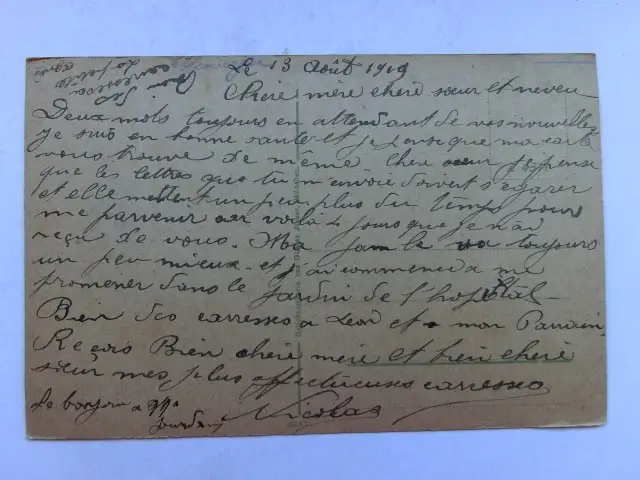 Le 13 Août 1919
Bon
caresses a
la petite
Chere mère cheré sœur et neveu
Deux mots toujours en attendant de vos nouvelles
je suis en bonne santé et je pense que ma carte
vous trouve de même. Chere sœur je pense
que les lettres que tu m'envoie doivent s'egarer
et elle mettent un peu plus du temps pour
me parvenir car voilà 4 jours que je n'ai
reçu de vous. Ma jambe va toujours
un peu mieux et j'ai commencé a me
promener dans le jardin de l'hopital
Bien des carresses a Leon et a mon Parrain
Reçois Bien cheré mère et bien cheré
sœur mes plus affectueuses carresses
Le bonjour a Mr
Nicolas